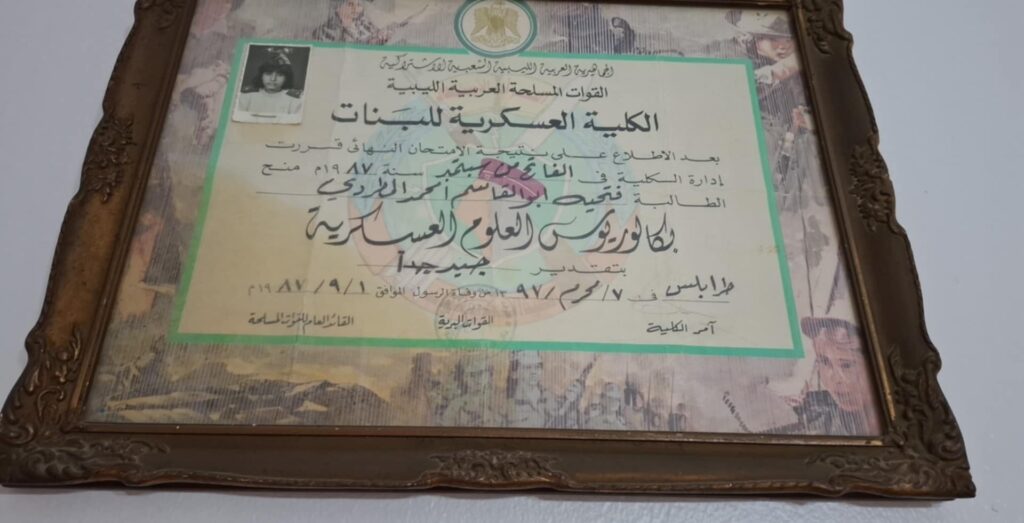 الجماهيرية العربية الليبية الشعبية الاشتراكية
القوات المسلحة العربية الليبية
الكلية العسكرية للبنات
بعد الاطلاع على نتيجة الامتحان النهائي قررت
إدارة الكلية في الفاتح من سبتمبر سنة ١٩٨٧م منح
الطالبة فتحية ابوالقاسم امحمد
بكالوريوس العلوم العسكرية
بتقدير جيد جداً
طرابلس في ٧/محرم/١٣٩٧ من وفاة الرسول الموافق ١٩٨٧/٩/١م
آمر الكلية القوات البرية القائد العام للقوات المسلحة